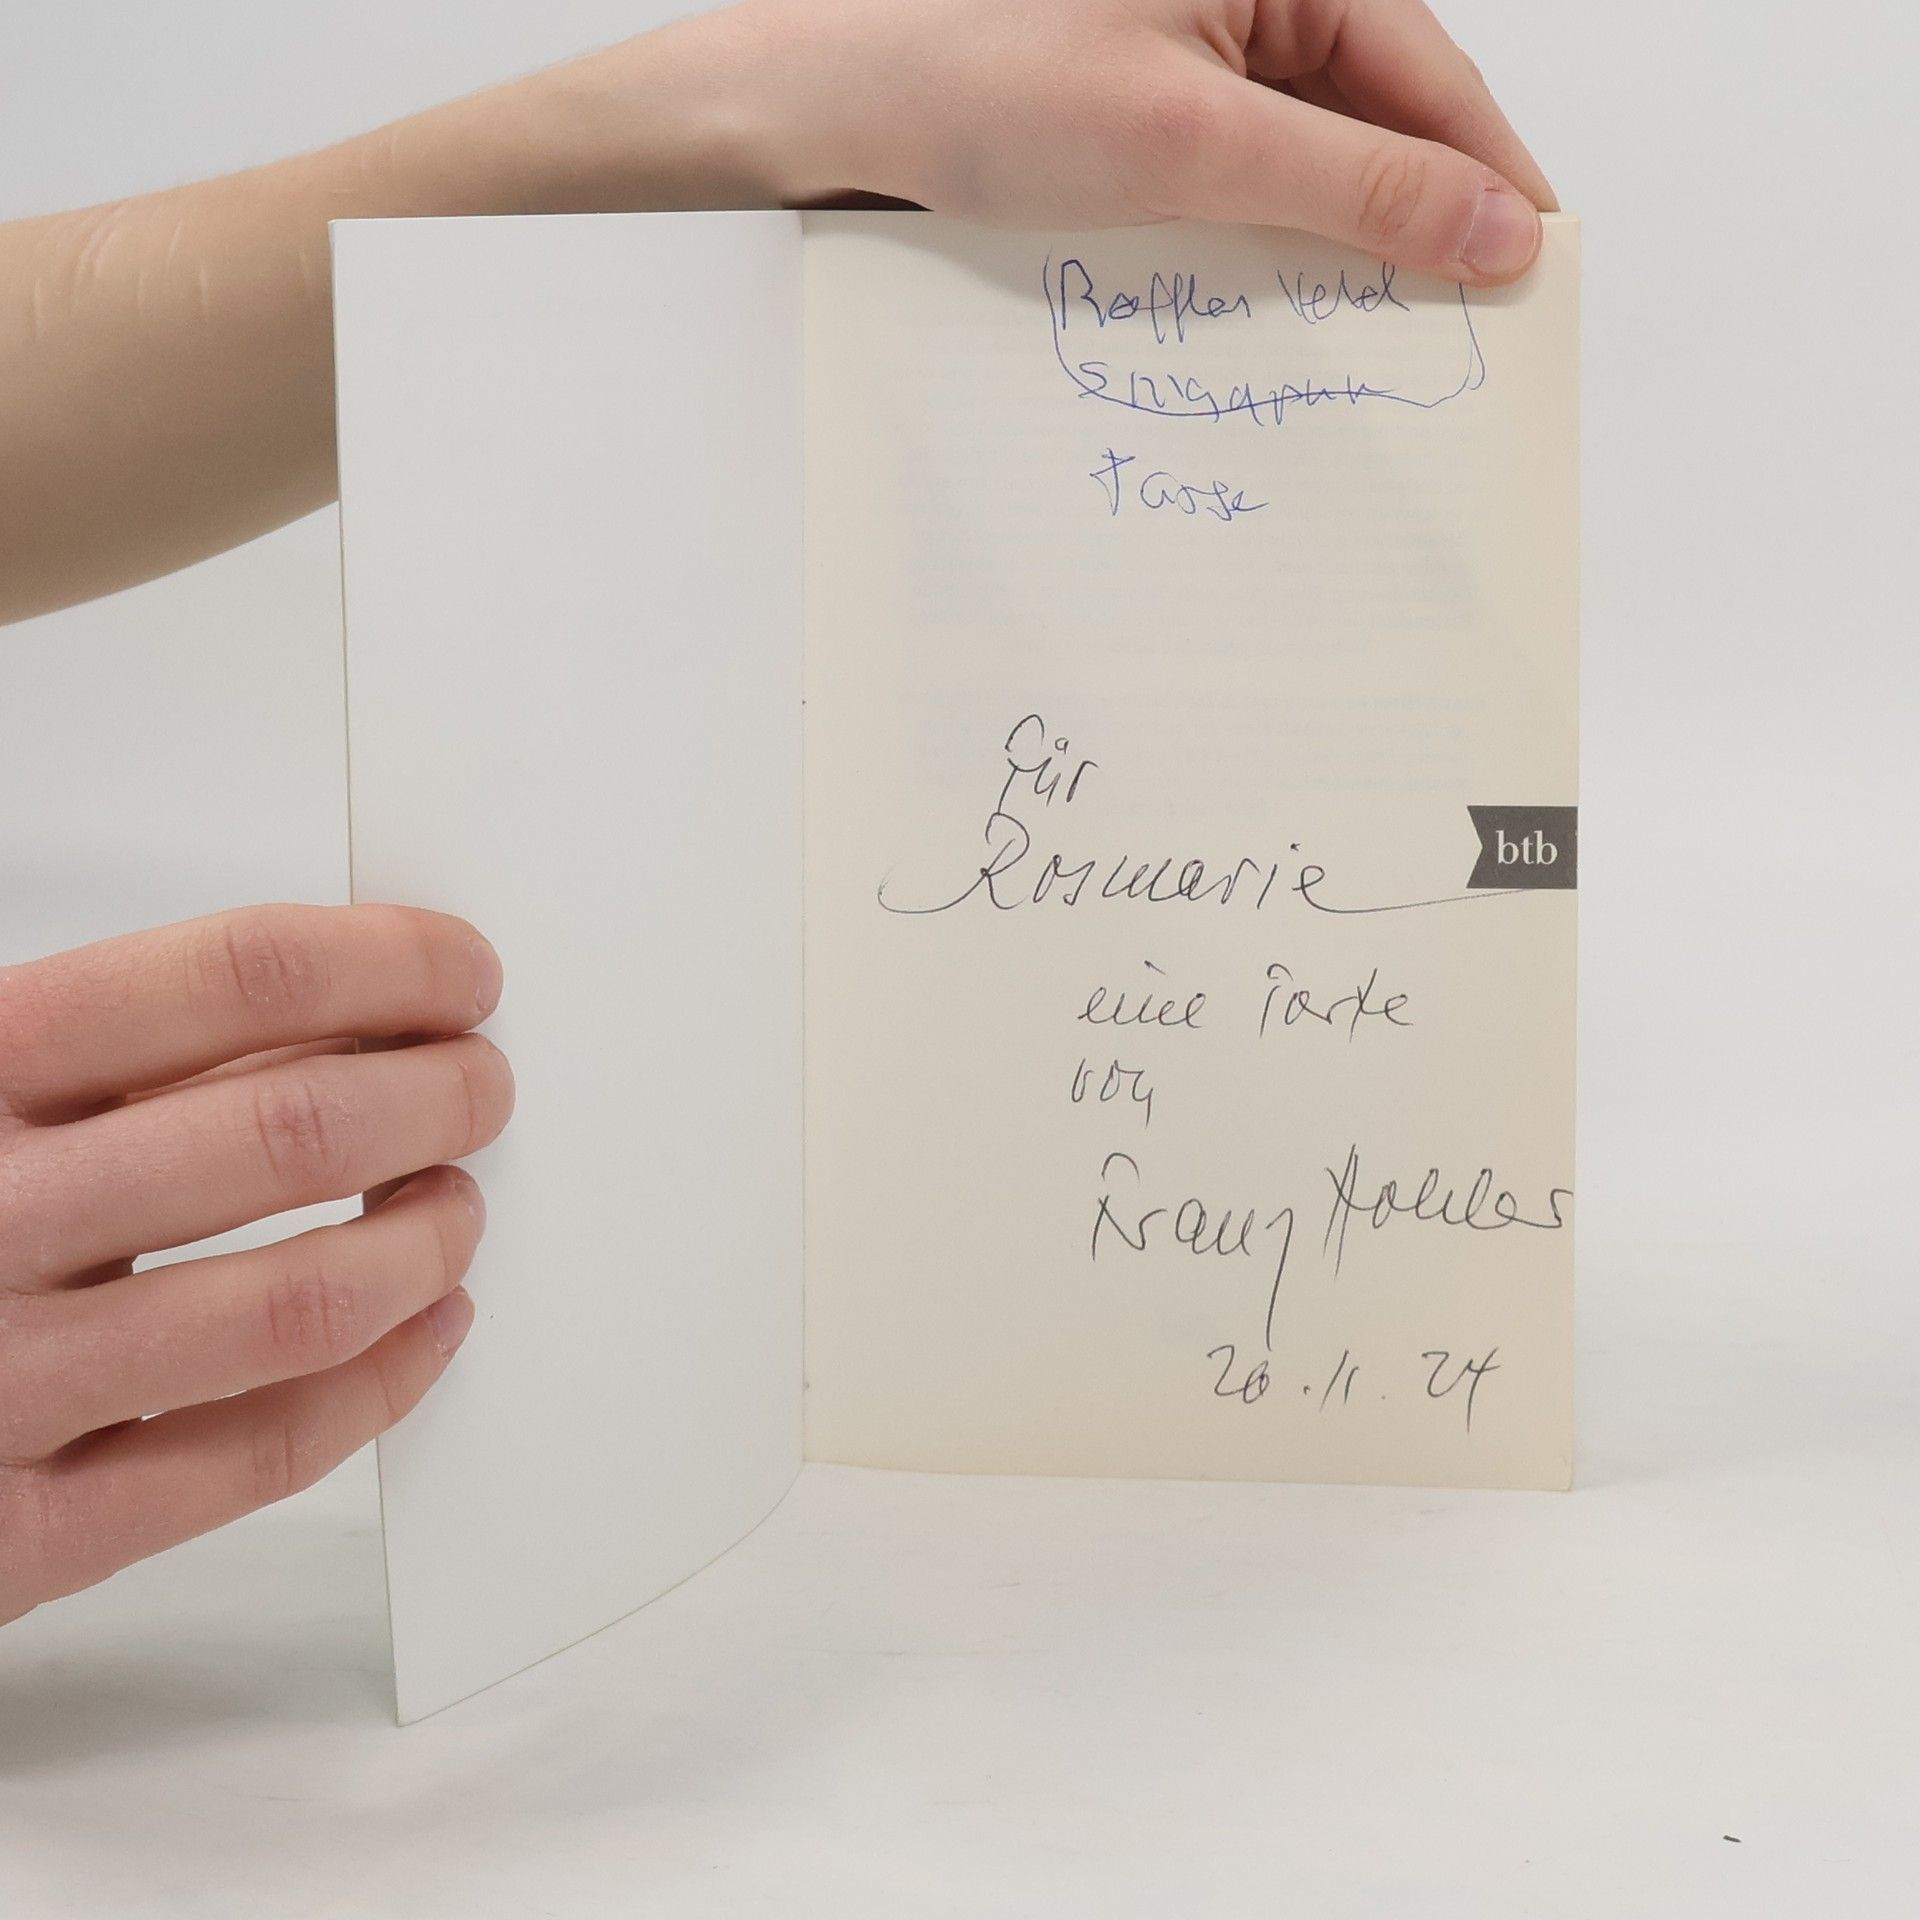 Raffles Hotel
Singapur
Tasse
für
Rosmarie
btb
eine Torte
von
Franz Hohler
20.11.24